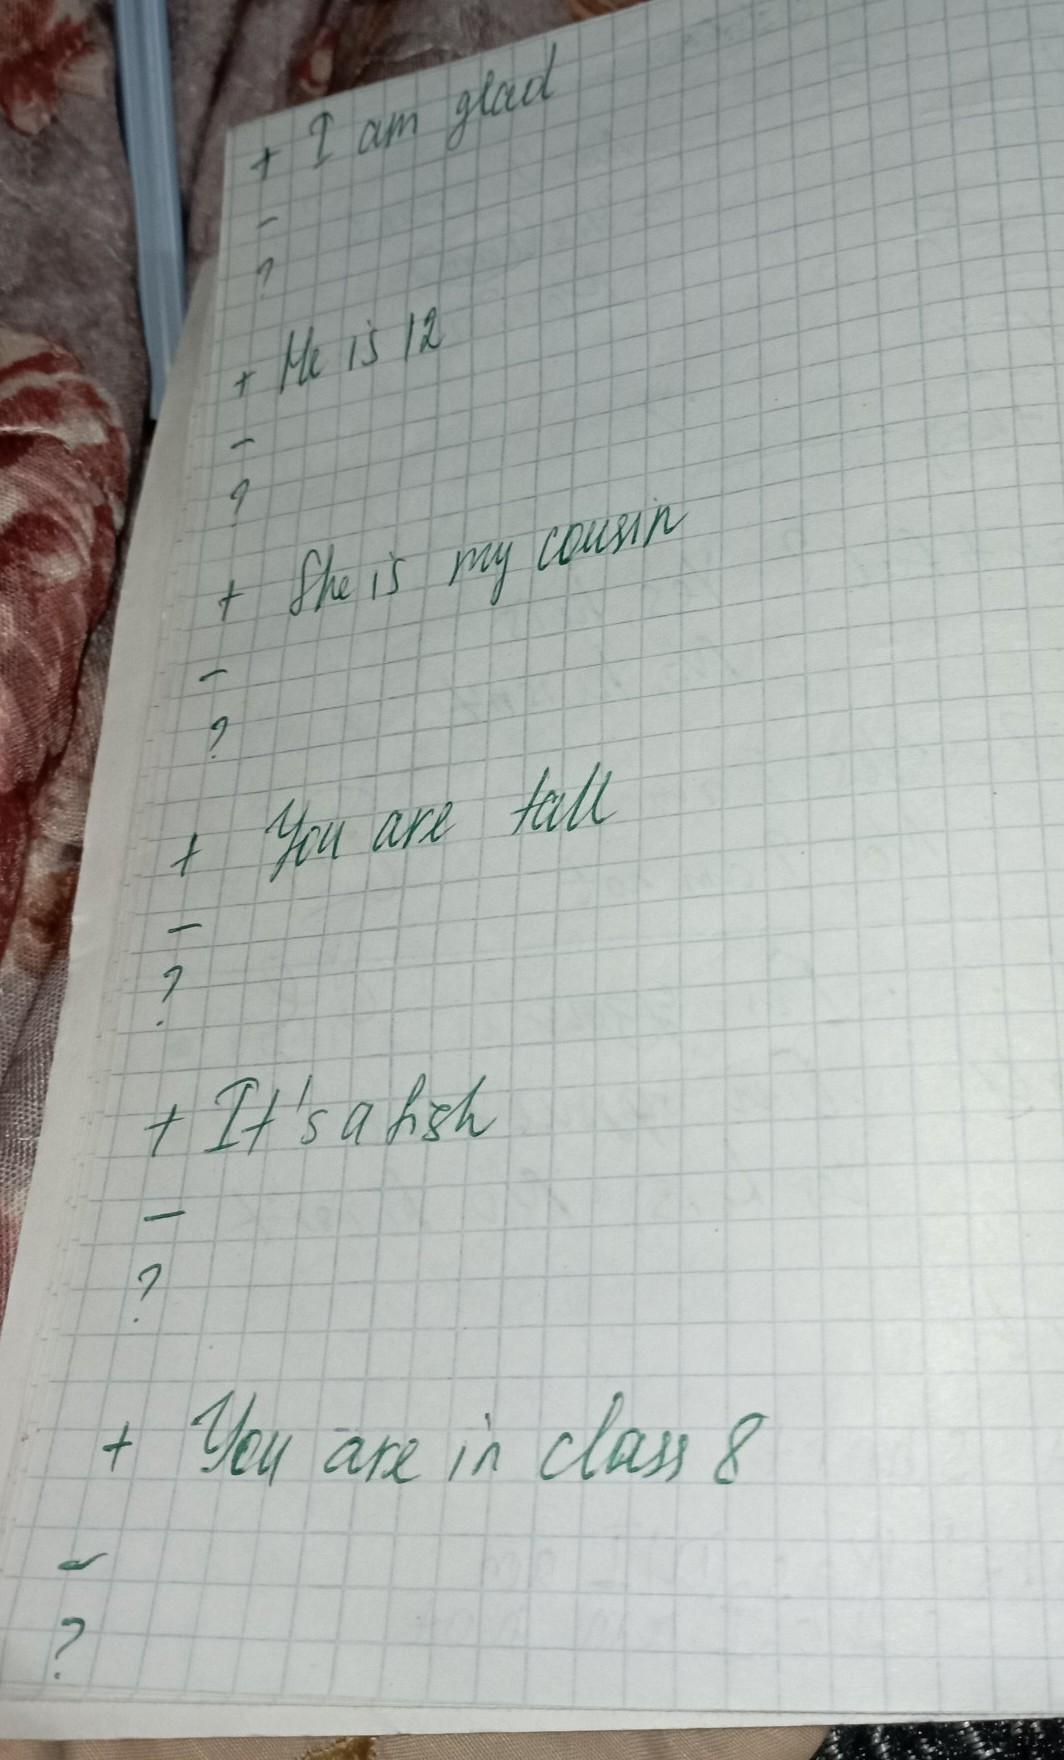 + I am glad
-
?
+ He is 12
-
?
+ She is my cousin
-
?
+ You are tall
-
?
+ It's a fish
-
?
+ You are in class 8
-
?